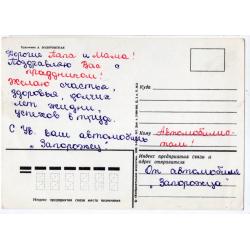 Дорогие Папа и Мама!
Поздравляю Вас с
праздником!
Желаю счастья,
здоровья, долгих
лет жизни,
успехов в труде.
С ув. ваш автомобиль
"Запорожец"
Куда
Кому Автомобилис-
там!
Индекс предприятия связи и
адрес отправителя
От автомобиля
"Запорожца"
Индекс предприятия связи места назначения